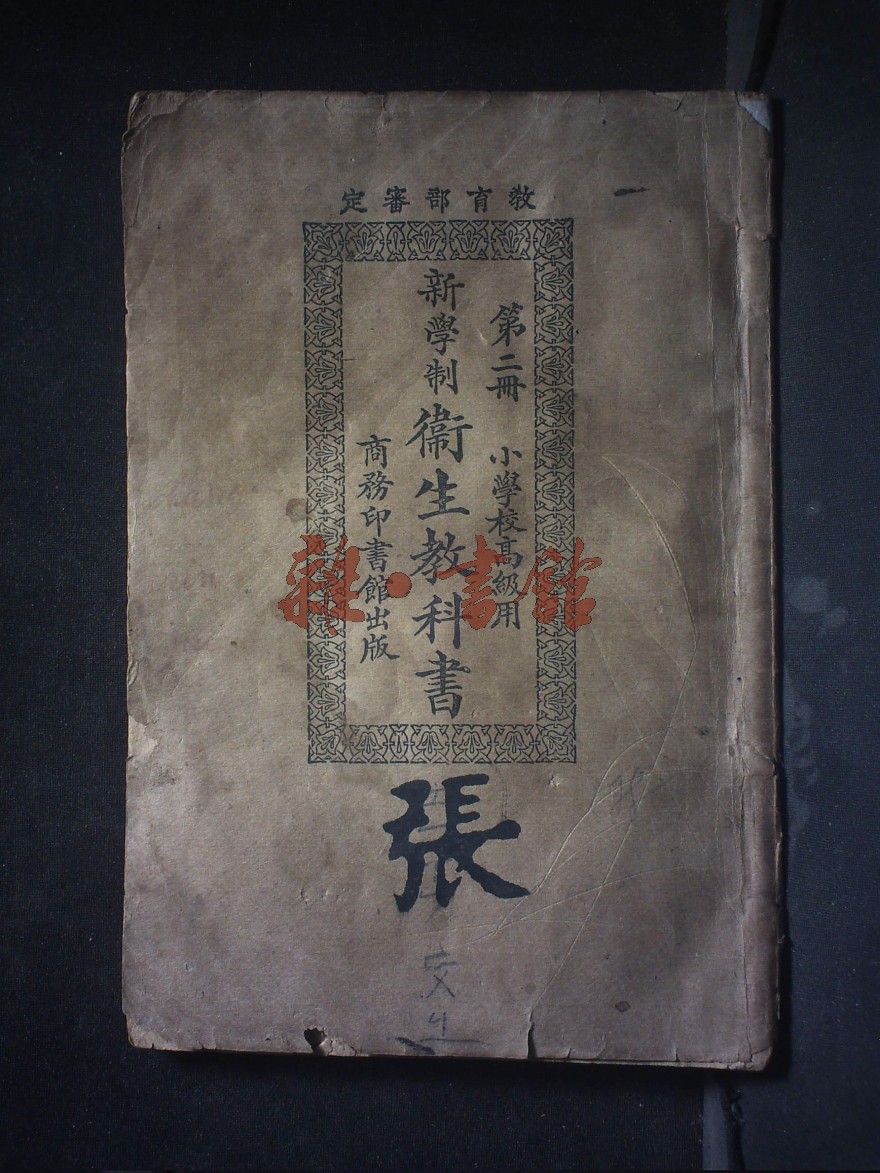 教育部審定
第二冊 小學校高級用
新學制衞生教科書
商務印書館出版
雜·書館
張